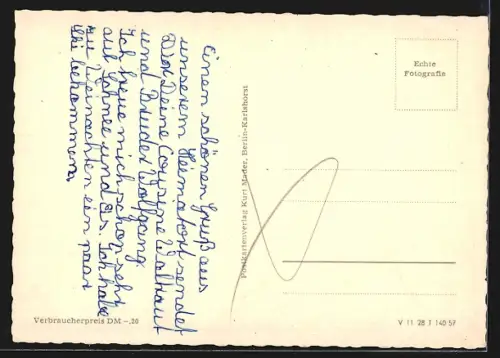 Einen schönen Gruß aus
unserem Heimatort sendet
Dir Deine Cousine Waltraut
und Bruder Wolfgang.
Ich freue mich schon sehr
auf Schnee und Eis. Ich habe
zu Weinachten ein paar
Ski bekommen.
Postkartenverlag Kurt Mader, Berlin-Karlshorst
Echte
Fotografie
Verbraucherpreis DM -,20
V 11 28 1 140 57